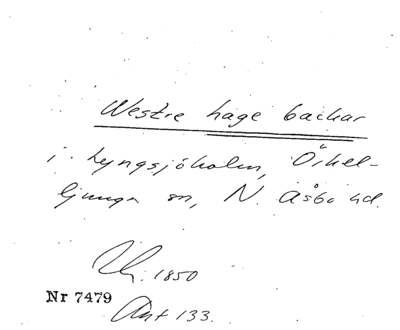 Westre hage backar
i Lyngsjöholm, Örkel-
ljunga sn, N. Åsbo hd.
1850
Nr 7479
Akt 133.